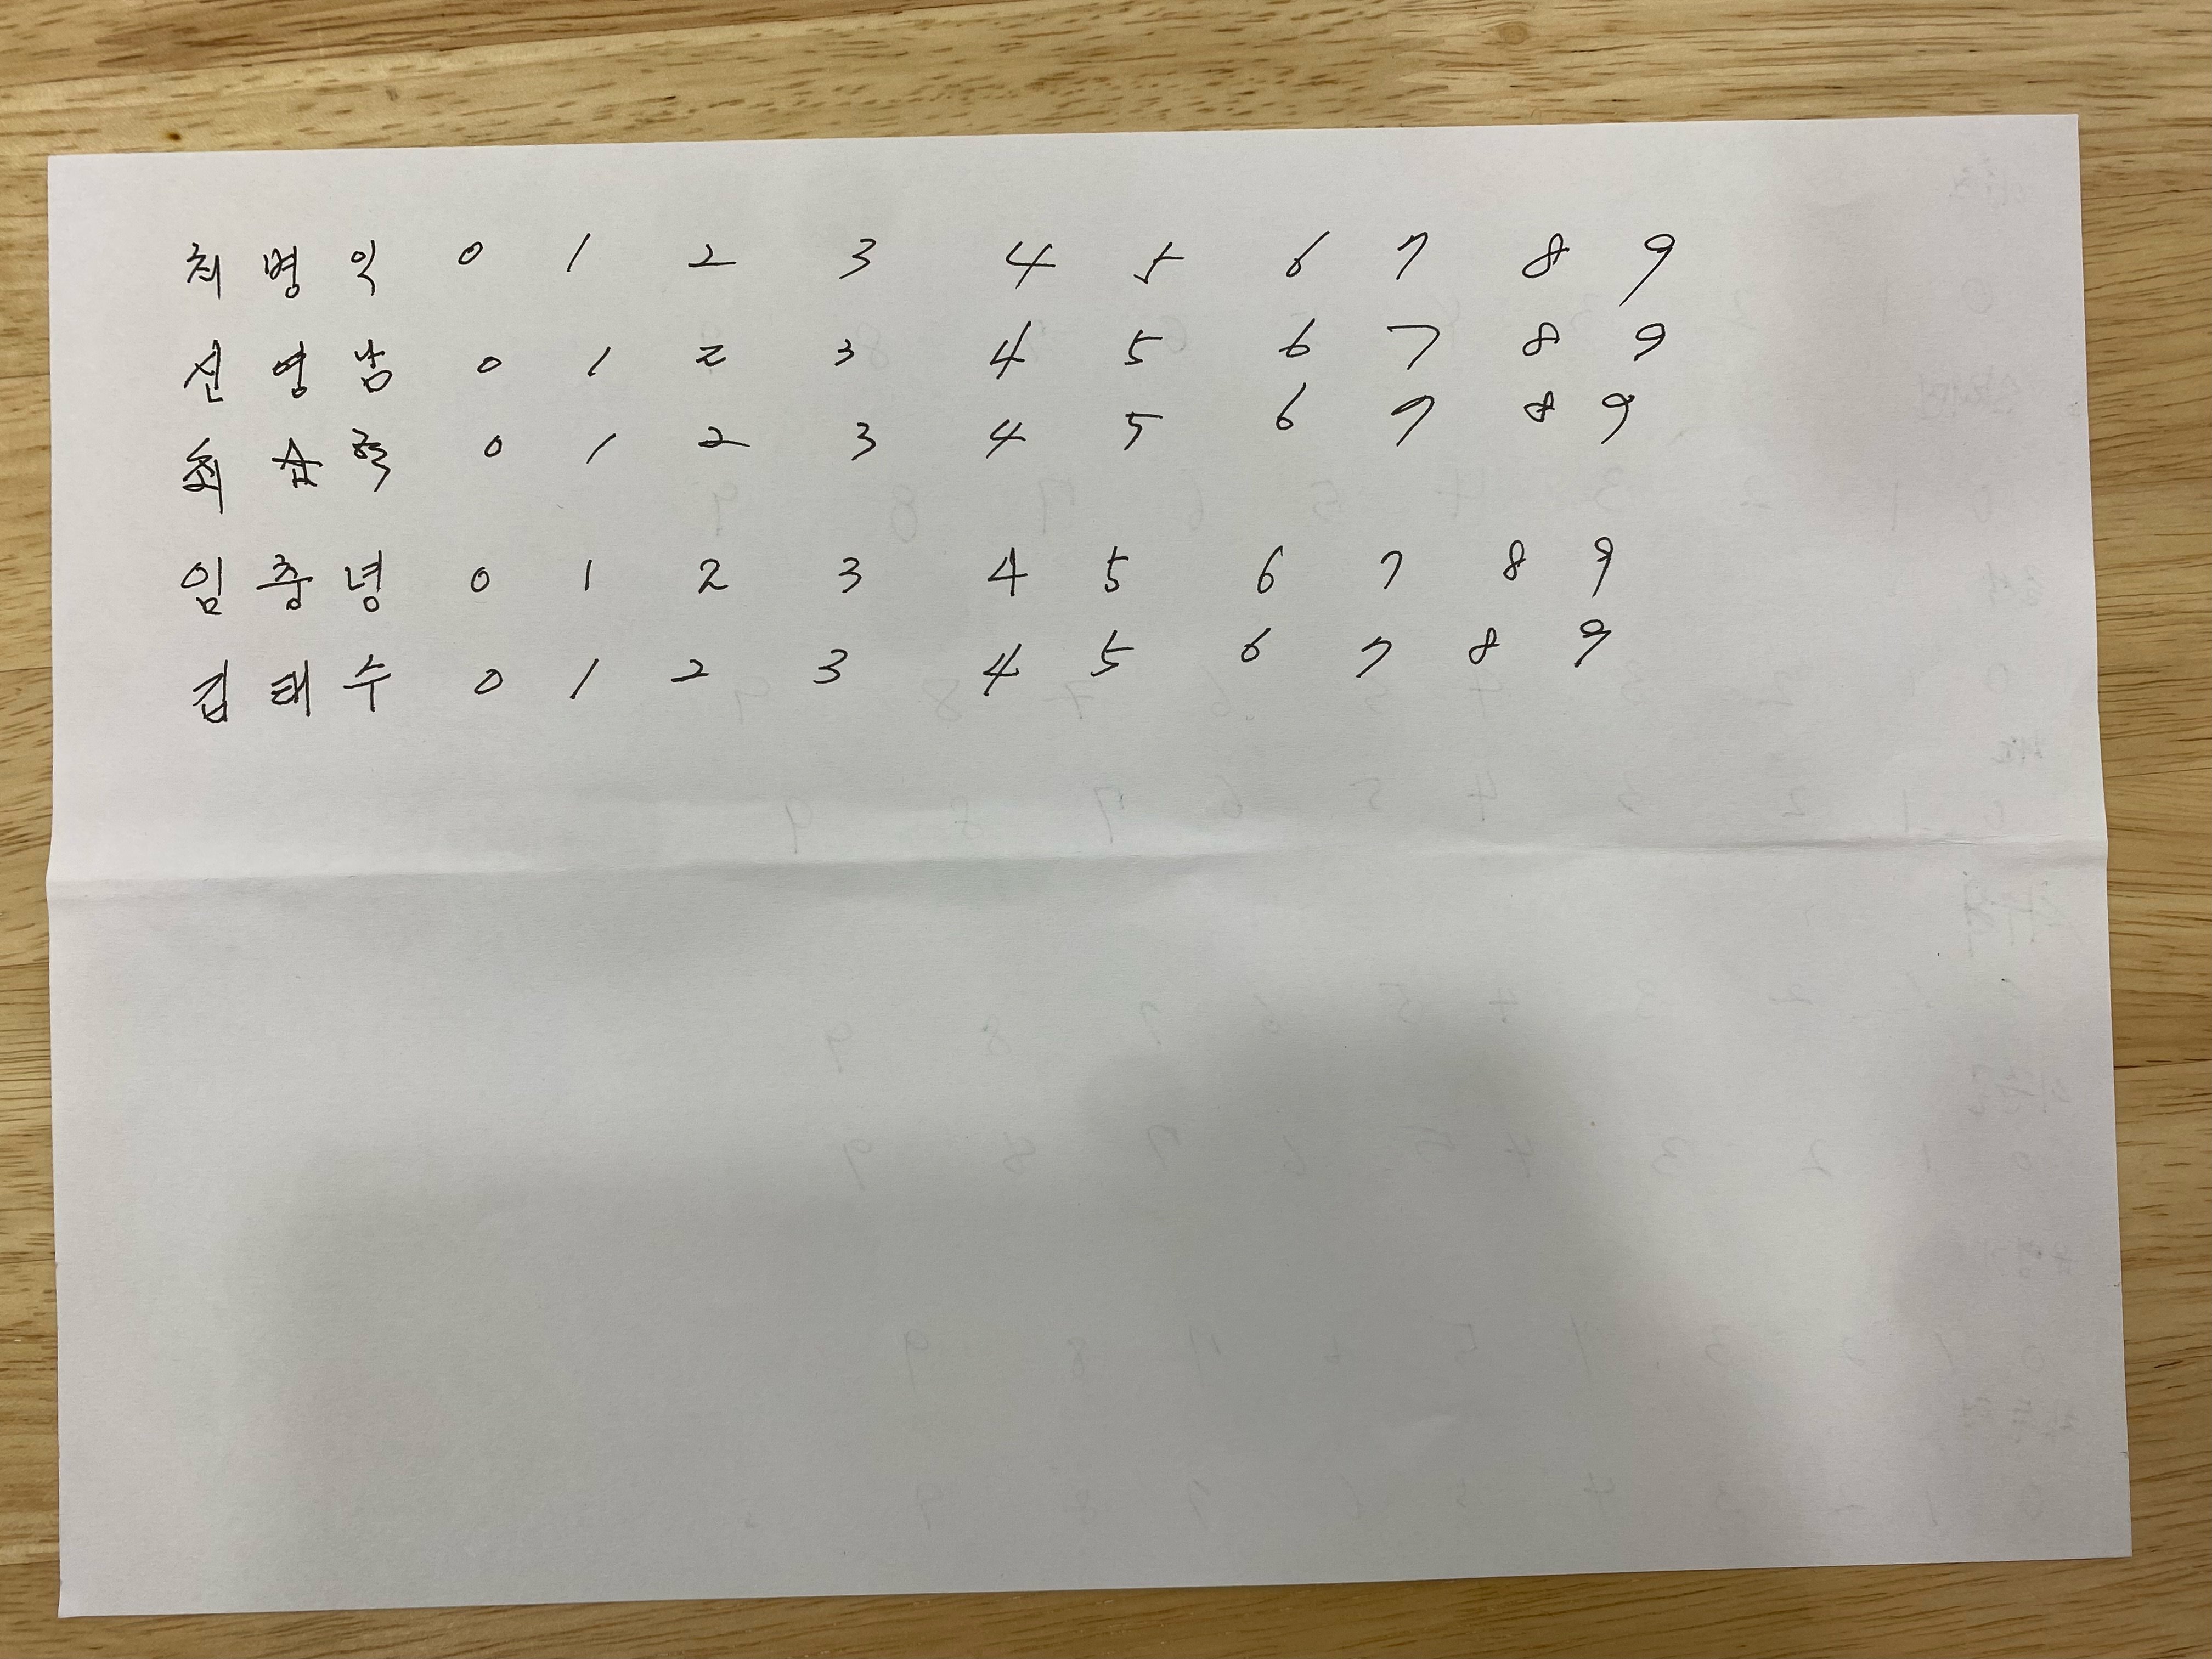 최병익 0 1 2 3 4 5 6 7 8 9
신영남 0 1 2 3 4 5 6 7 8 9
최 0 1 2 3 4 5 6 7 8 9
임충녕 0 1 2 3 4 5 6 7 8 9
김태수 0 1 2 3 4 5 6 7 8 9